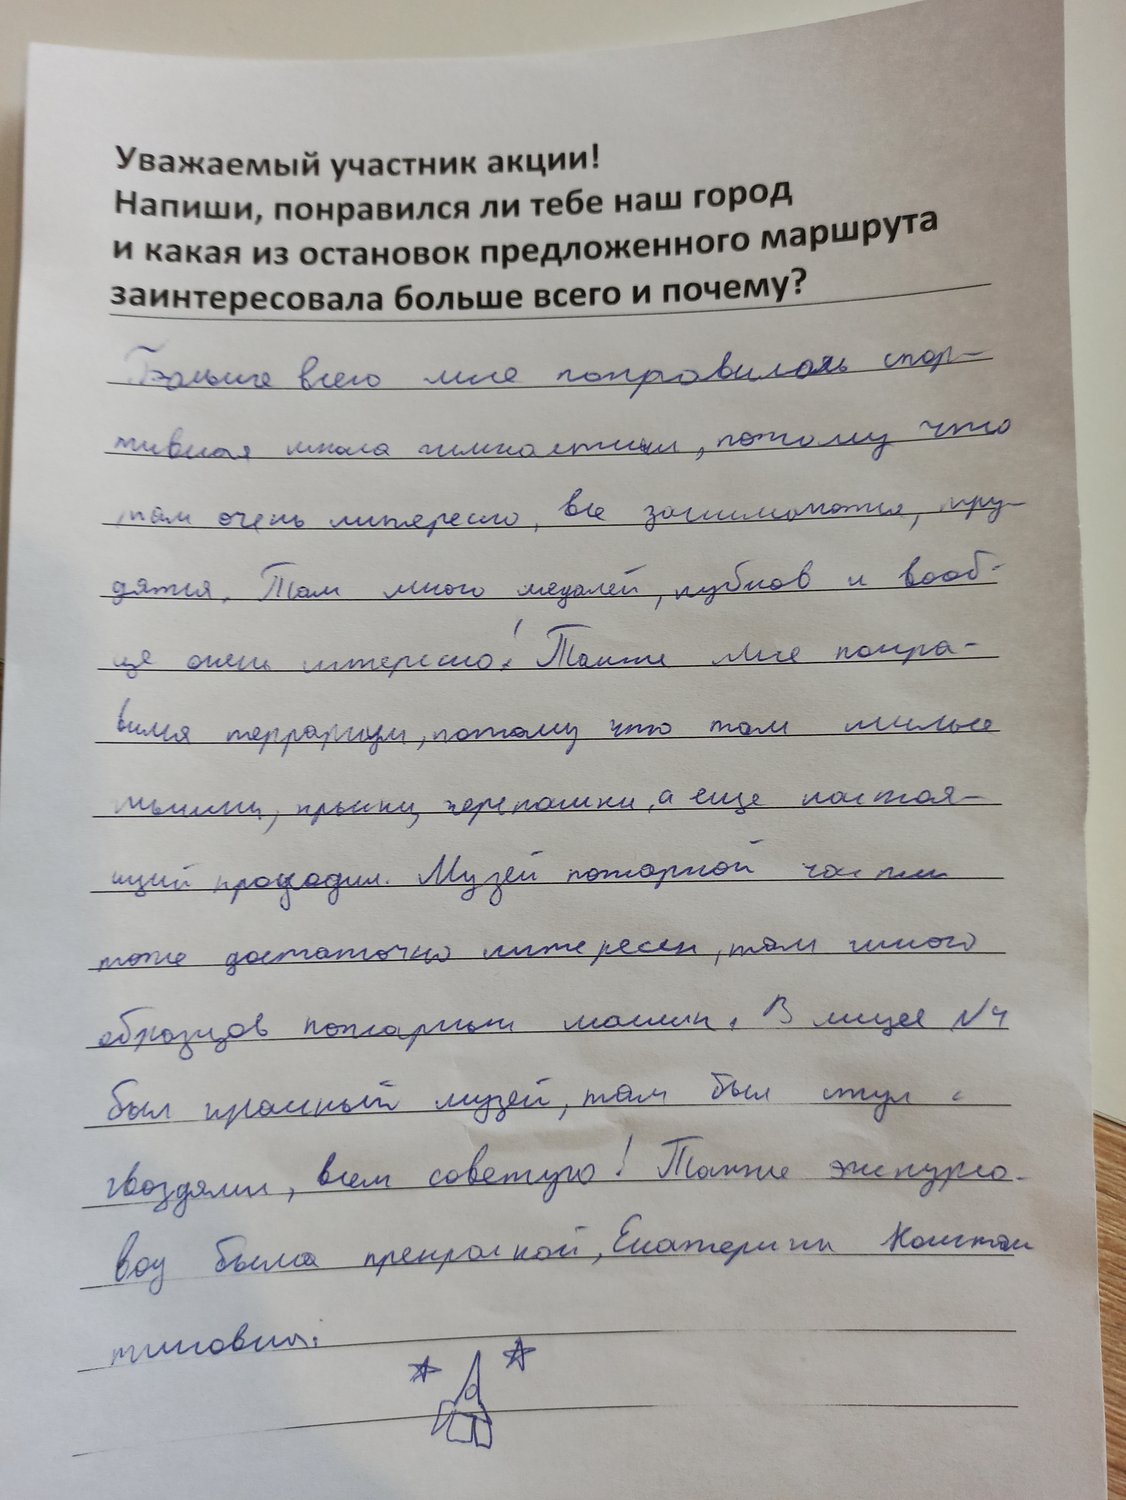 Уважаемый участник акции!
Напиши, понравился ли тебе наш город
и какая из остановок предложенного маршрута
заинтересовала больше всего и почему?
Больше всего мне понравилась спор-
тивная школа гимнастики, потому что
там очень интересно, все занимаются, тру-
дятся. Там много медалей, кубков и вооб-
ще очень интересно! Также мне понра-
вился террариум, потому что там милые
мышки, крыски, черепашки, а еще настоя-
щий крокодил. Музей пожарной части
тоже достаточно интересен, там много
образцов пожарных машин. В лицее №4
был классный музей, там был стул с
гвоздями, всем советую! Также экскурсо-
вод была прекрасной, Екатерина Констан
тиновна.